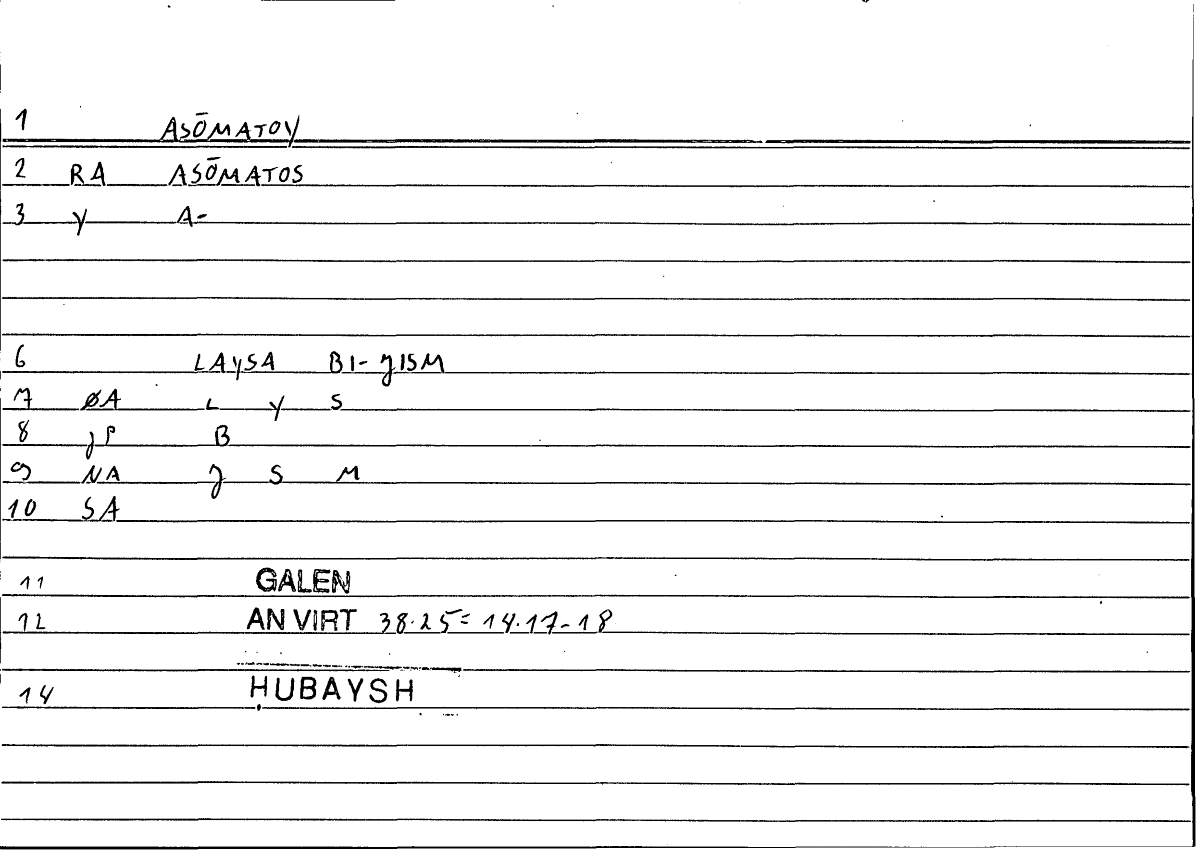 1 ASŌMATOY
2 RA ASŌMATOS
3 Y A-
6 LAYSA BI-JISM
7 ØA L Y S
8 JP B
9 NA J S M
10 SA
11 GALEN
12 AN VIRT 38.25=14.17-18
14 ḤUBAYSH